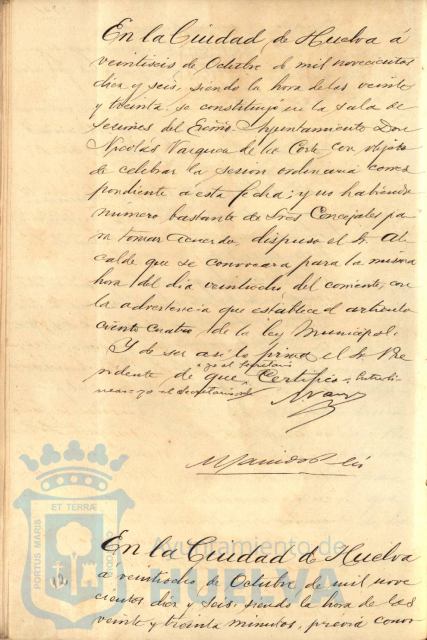 En la Ciudad de Huelva á
veintiseis de Octubre de mil novecientos
diez y seis, siendo la hora de las veinte
y treinta, se constituyó en la sala de
sesiones del Excmo Ayuntamiento Don
Nicolás Vazquez de la Corte, con objeto
de celebrar la sesion ordinaria corres
pondiente á esta fecha; y no habiendo
número bastante de Sres Concejales pa
ra tomar acuerdo, dispuso el Sr. Al
calde que se convocara para la misma
hora del dia veintiocho del corriente, con
la advertencia que establece el articulo
ciento cuatro de la ley Municipal.
Y de ser asi lo firma el Sr. Pre
yo el Secretario
sidente de que Certifico = Entreli
neas = yo el Secretario =
ET TERRÆ
PORTUS MARIS
CUSTODIA
Ayuntamiento de
HUELVA
En la Ciudad de Huelva
á veintiocho de Octubre de mil nove
cientos diez y seis, siendo la hora de las
veinte y treinta minutos, previa convo